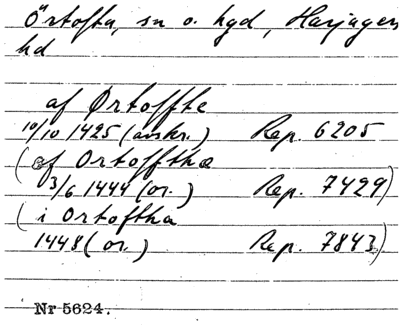 Örtofta, sn o. hgd, Harjagers
hd
af Ørtoffte
10/10 1425 (avskr.) Rep. 6205
(af Ortoffthæ
3/6 1444 (or.) Rep. 7429)
(i Ortoftha
1448 (or.) Rep. 7843)
Nr 5624.